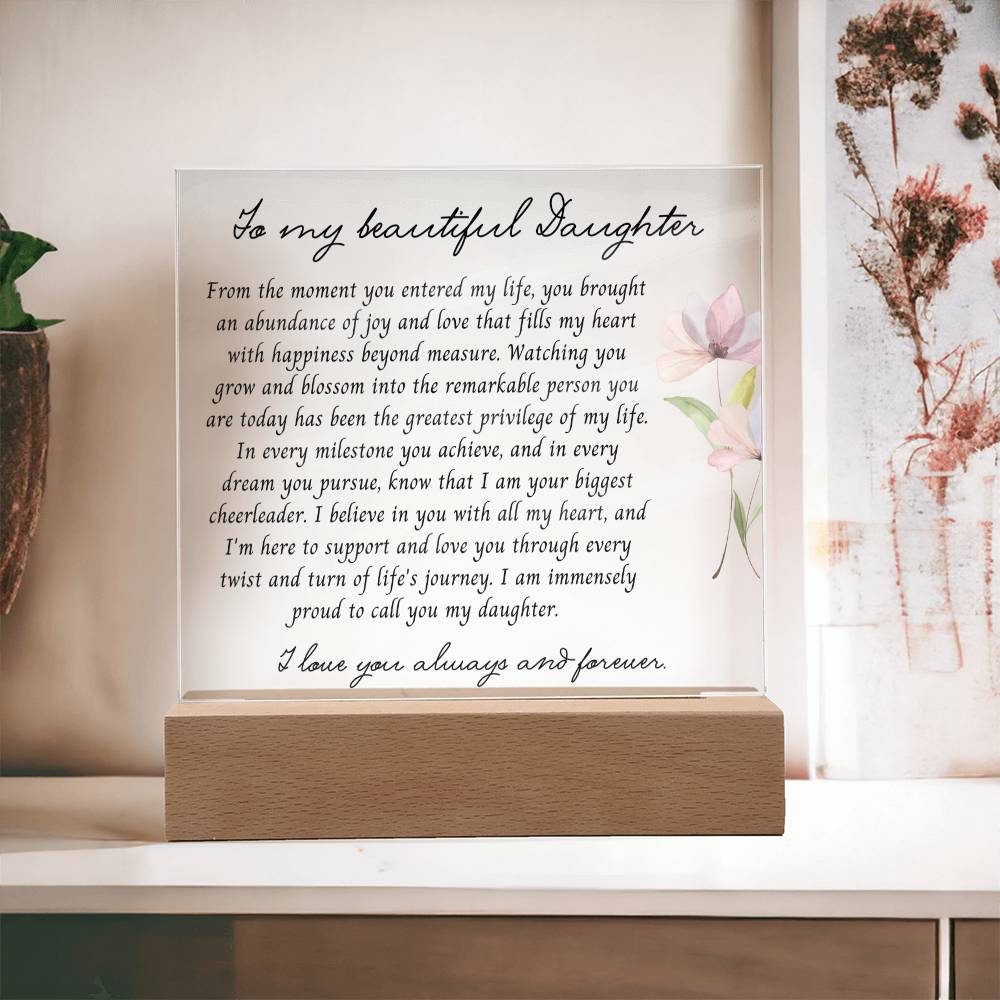 To my beautiful Daughter
From the moment you entered my life, you brought
an abundance of joy and love that fills my heart
with happiness beyond measure. Watching you
grow and blossom into the remarkable person you
are today has been the greatest privilege of my life.
In every milestone you achieve, and in every
dream you pursue, know that I am your biggest
cheerleader. I believe in you with all my heart, and
I'm here to support and love you through every
twist and turn of life's journey. I am immensely
proud to call you my daughter.
I love you always and forever.